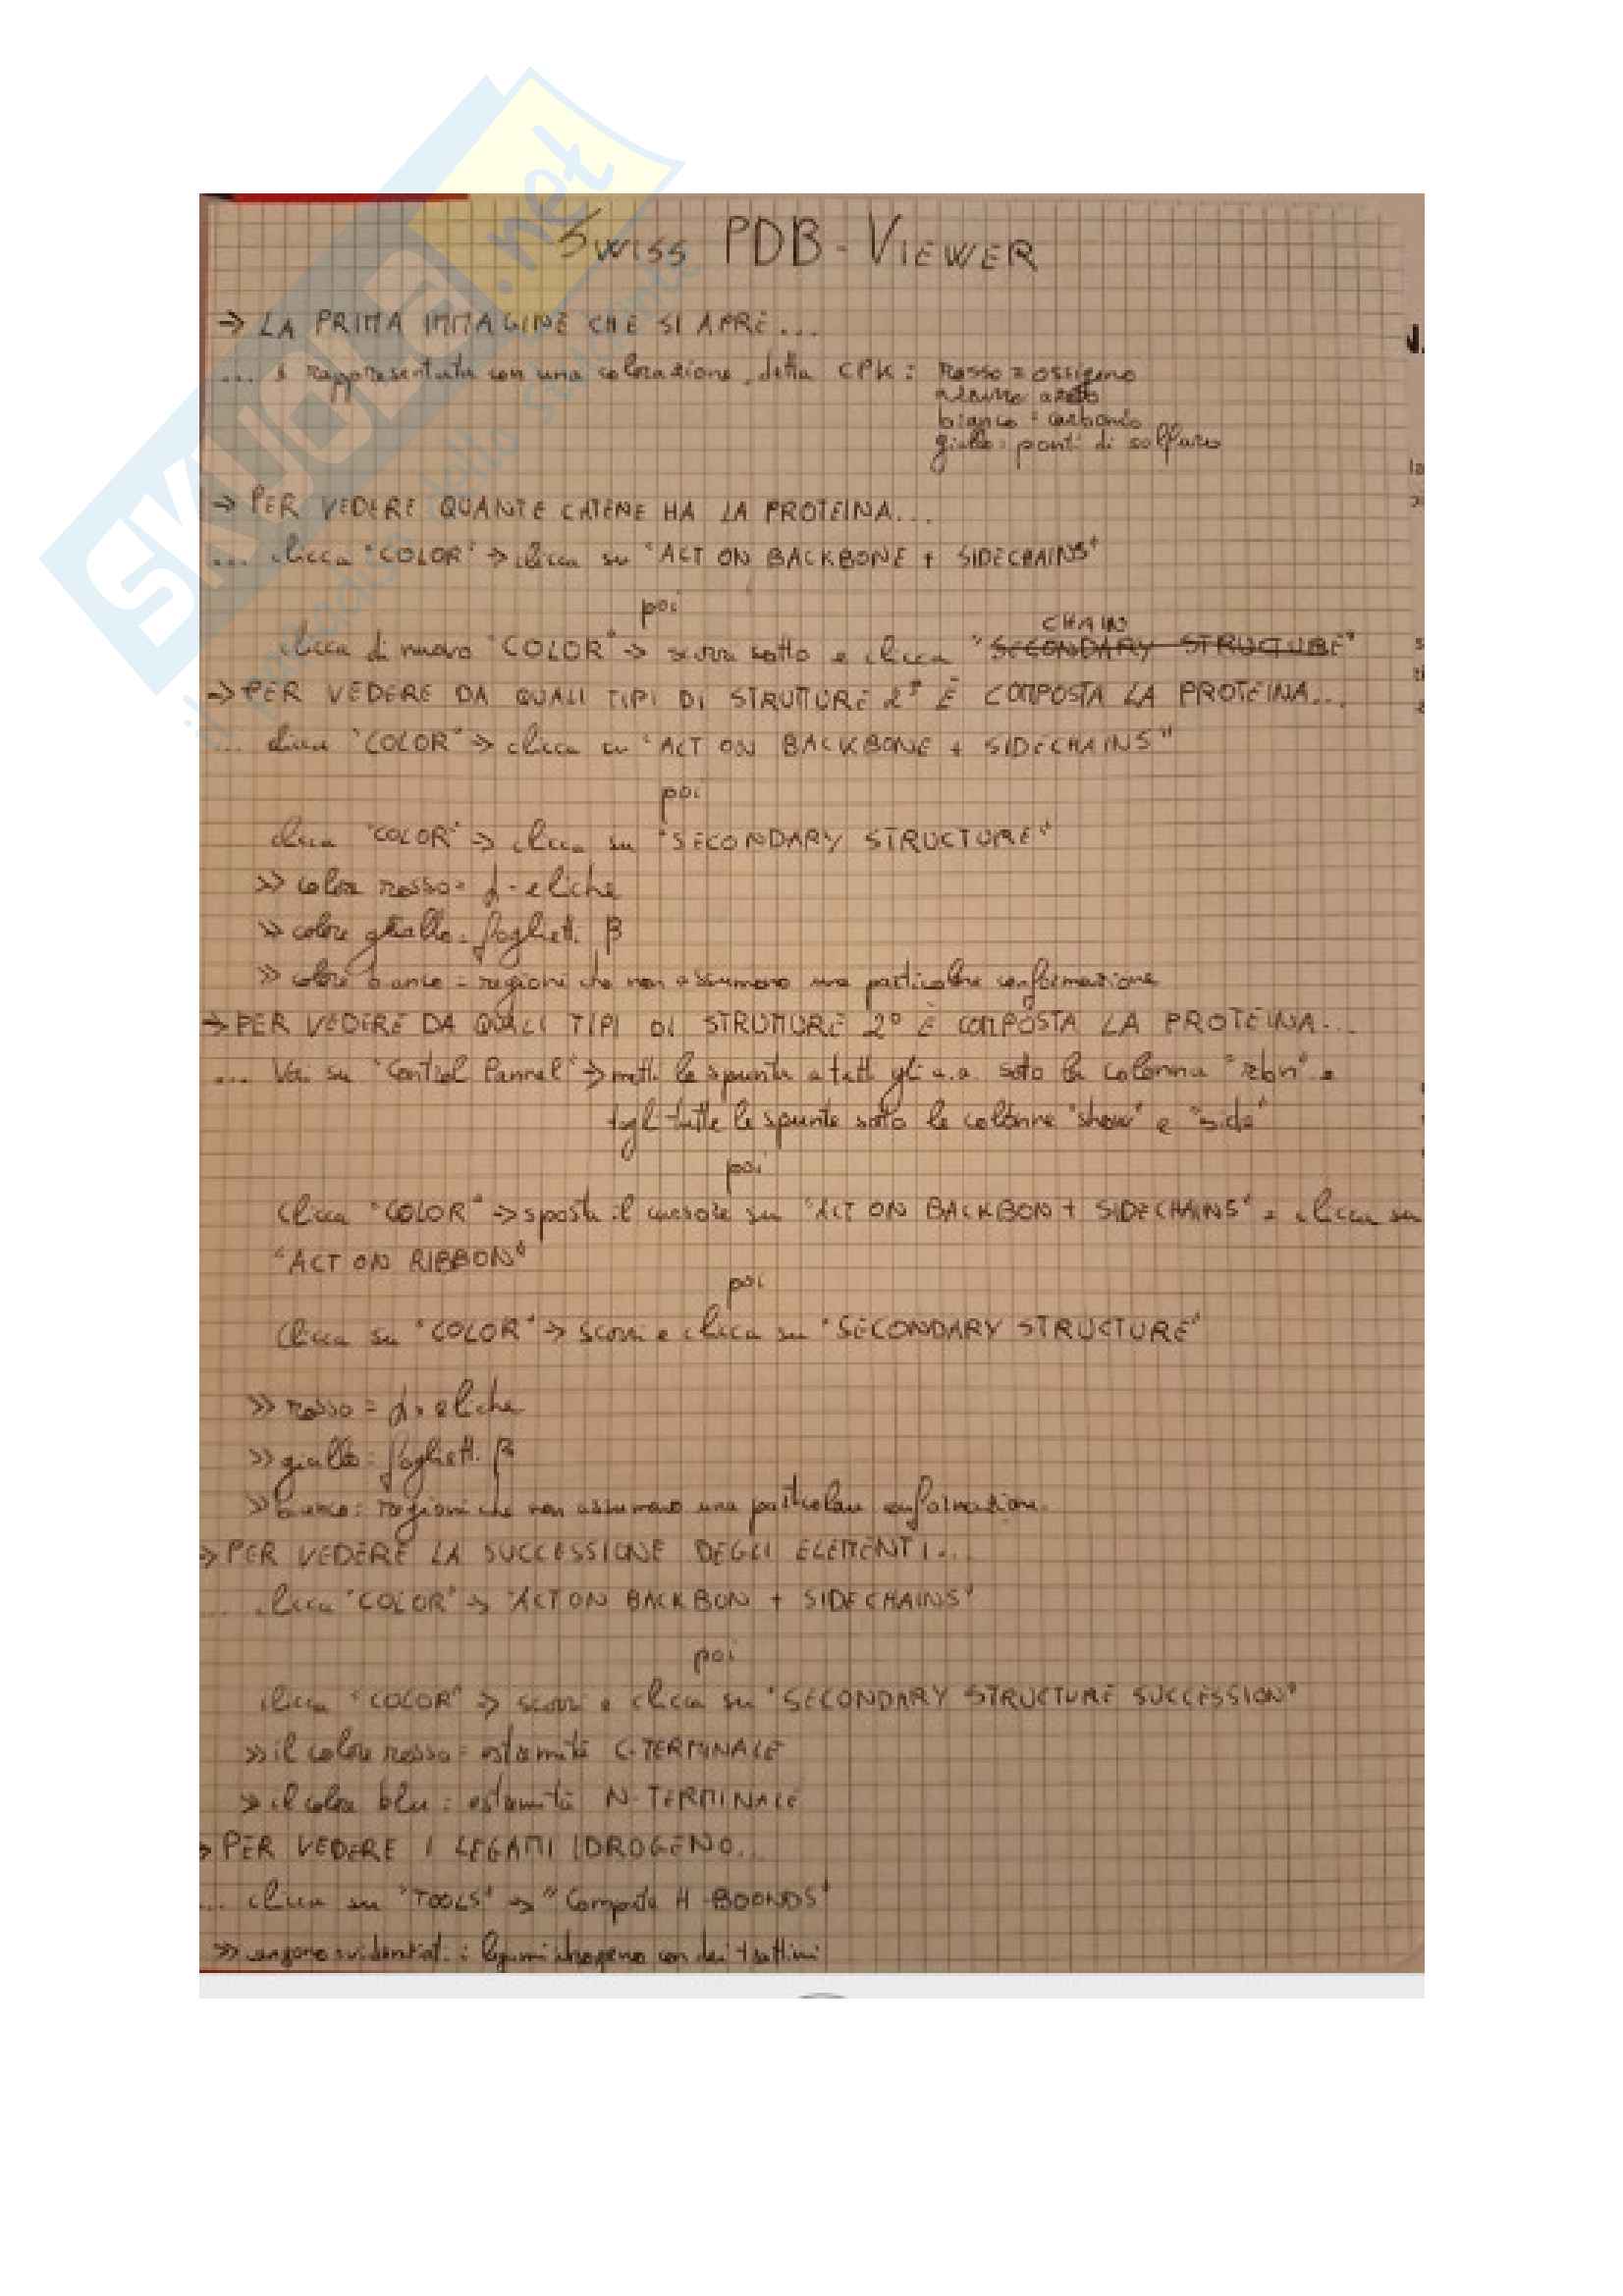 SKUOLA.net
il paradiso dello studente
SWISS PDB-VIEWER
→ LA PRIMA IMMAGINE CHE SI APRE...
... è rappresentata con una colorazione detta CPK: rosso = ossigeno
azoto
bianco = carbonio
giallo = ponti di solfuro
→ PER VEDERE QUANTE CATENE HA LA PROTEINA...
... clicca "COLOR" → clicca su "ACT ON BACKBONE + SIDECHAINS"
poi
CHAIN
clicca di nuovo "COLOR" → scorri sotto e clicca "SECONDARY STRUCTURE"
→ PER VEDERE DA QUALI TIPI DI STRUTTURE 2° È COMPOSTA LA PROTEINA...
... clicca "COLOR" → clicca su "ACT ON BACKBONE + SIDECHAINS"
poi
clicca "COLOR" → clicca su "SECONDARY STRUCTURE"
>> colore rosso = α-eliche
>> colore giallo = foglietti β
>> colore bianco = regioni che non assumono una particolare conformazione
→ PER VEDERE DA QUALI TIPI DI STRUTTURE 2° È COMPOSTA LA PROTEINA...
... Vai su "Control Pannel" → metti le spunte a tutti gli a.a. sotto la colonna "ribn" e
togli tutte le spunte sotto le colonne "show" e "side"
poi
clicca "COLOR" → sposta il cursore su "ACT ON BACKBON + SIDECHAINS" e clicca su
"ACT ON RIBBON"
poi
clicca su "COLOR" → scorri e clicca su "SECONDARY STRUCTURE"
>> rosso = α-eliche
>> giallo = foglietti β
>> bianco = regioni che non assumono una particolare conformazione.
→ PER VEDERE LA SUCCESSIONE DEGLI ELEMENTI...
... clicca "COLOR" → "ACT ON BACKBON + SIDECHAINS"
poi
clicca "COLOR" → scorri e clicca su "SECONDARY STRUCTURE SUCCESSION"
>> il colore rosso = estremità C-TERMINALE
>> il colore blu = estremità N-TERMINALE
→ PER VEDERE I LEGAMI IDROGENO...
... clicca su "TOOLS" → "Compute H-BOONDS"
>> vengono evidenziati i legami idrogeno con dei trattini